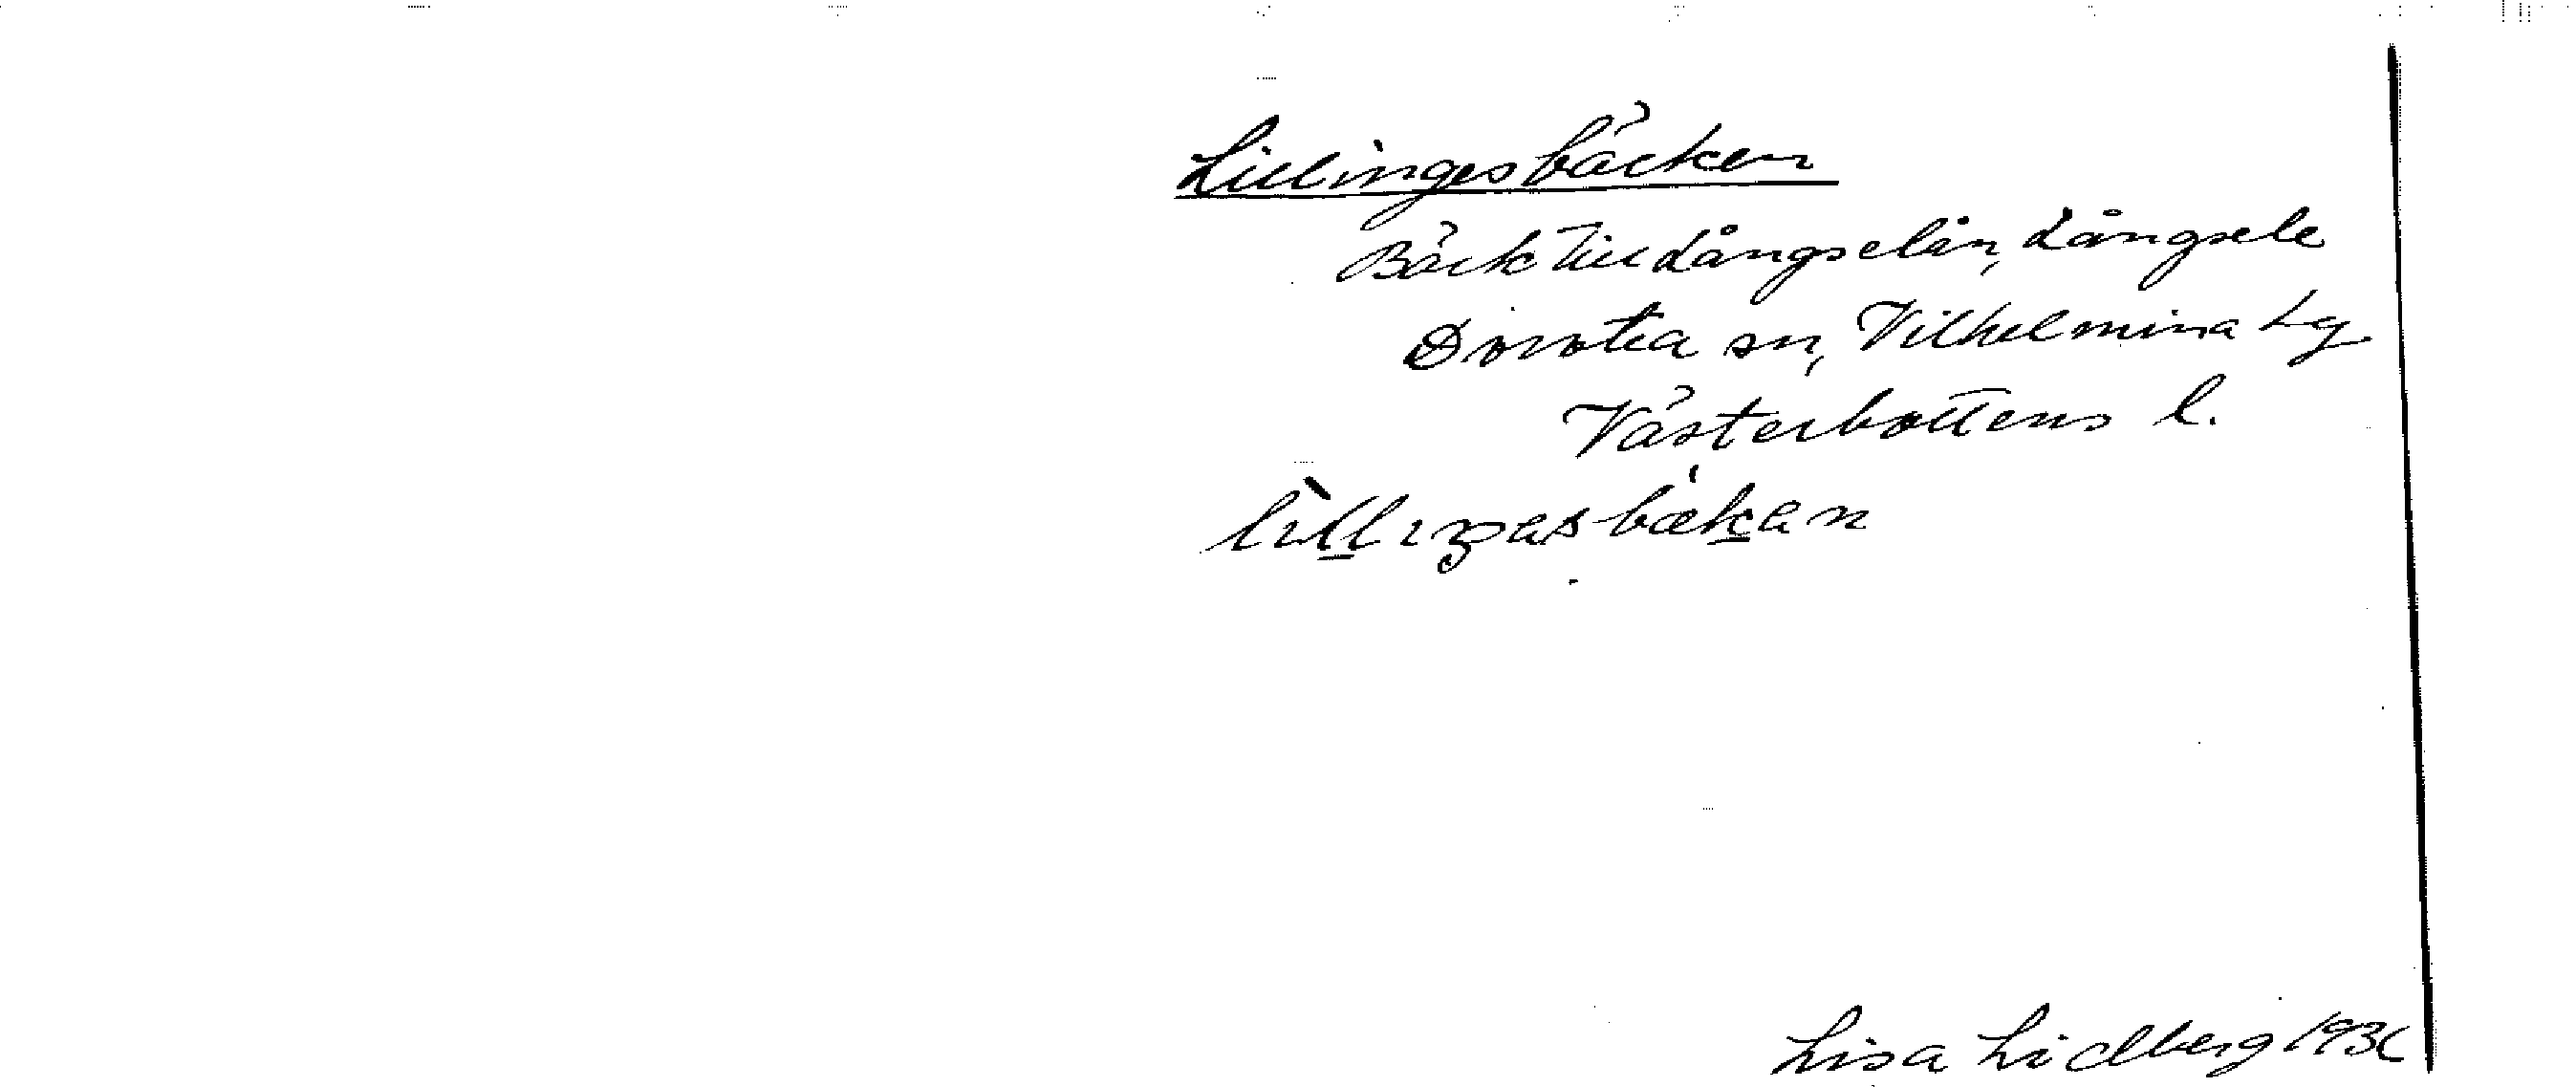 Lillingesbäcken
Bäck till Långselån, Långsele
Dorotea sn, Vilhelmina tg
Västerbottens l.
lìllıŋasbækan
Lisa Lidberg 193